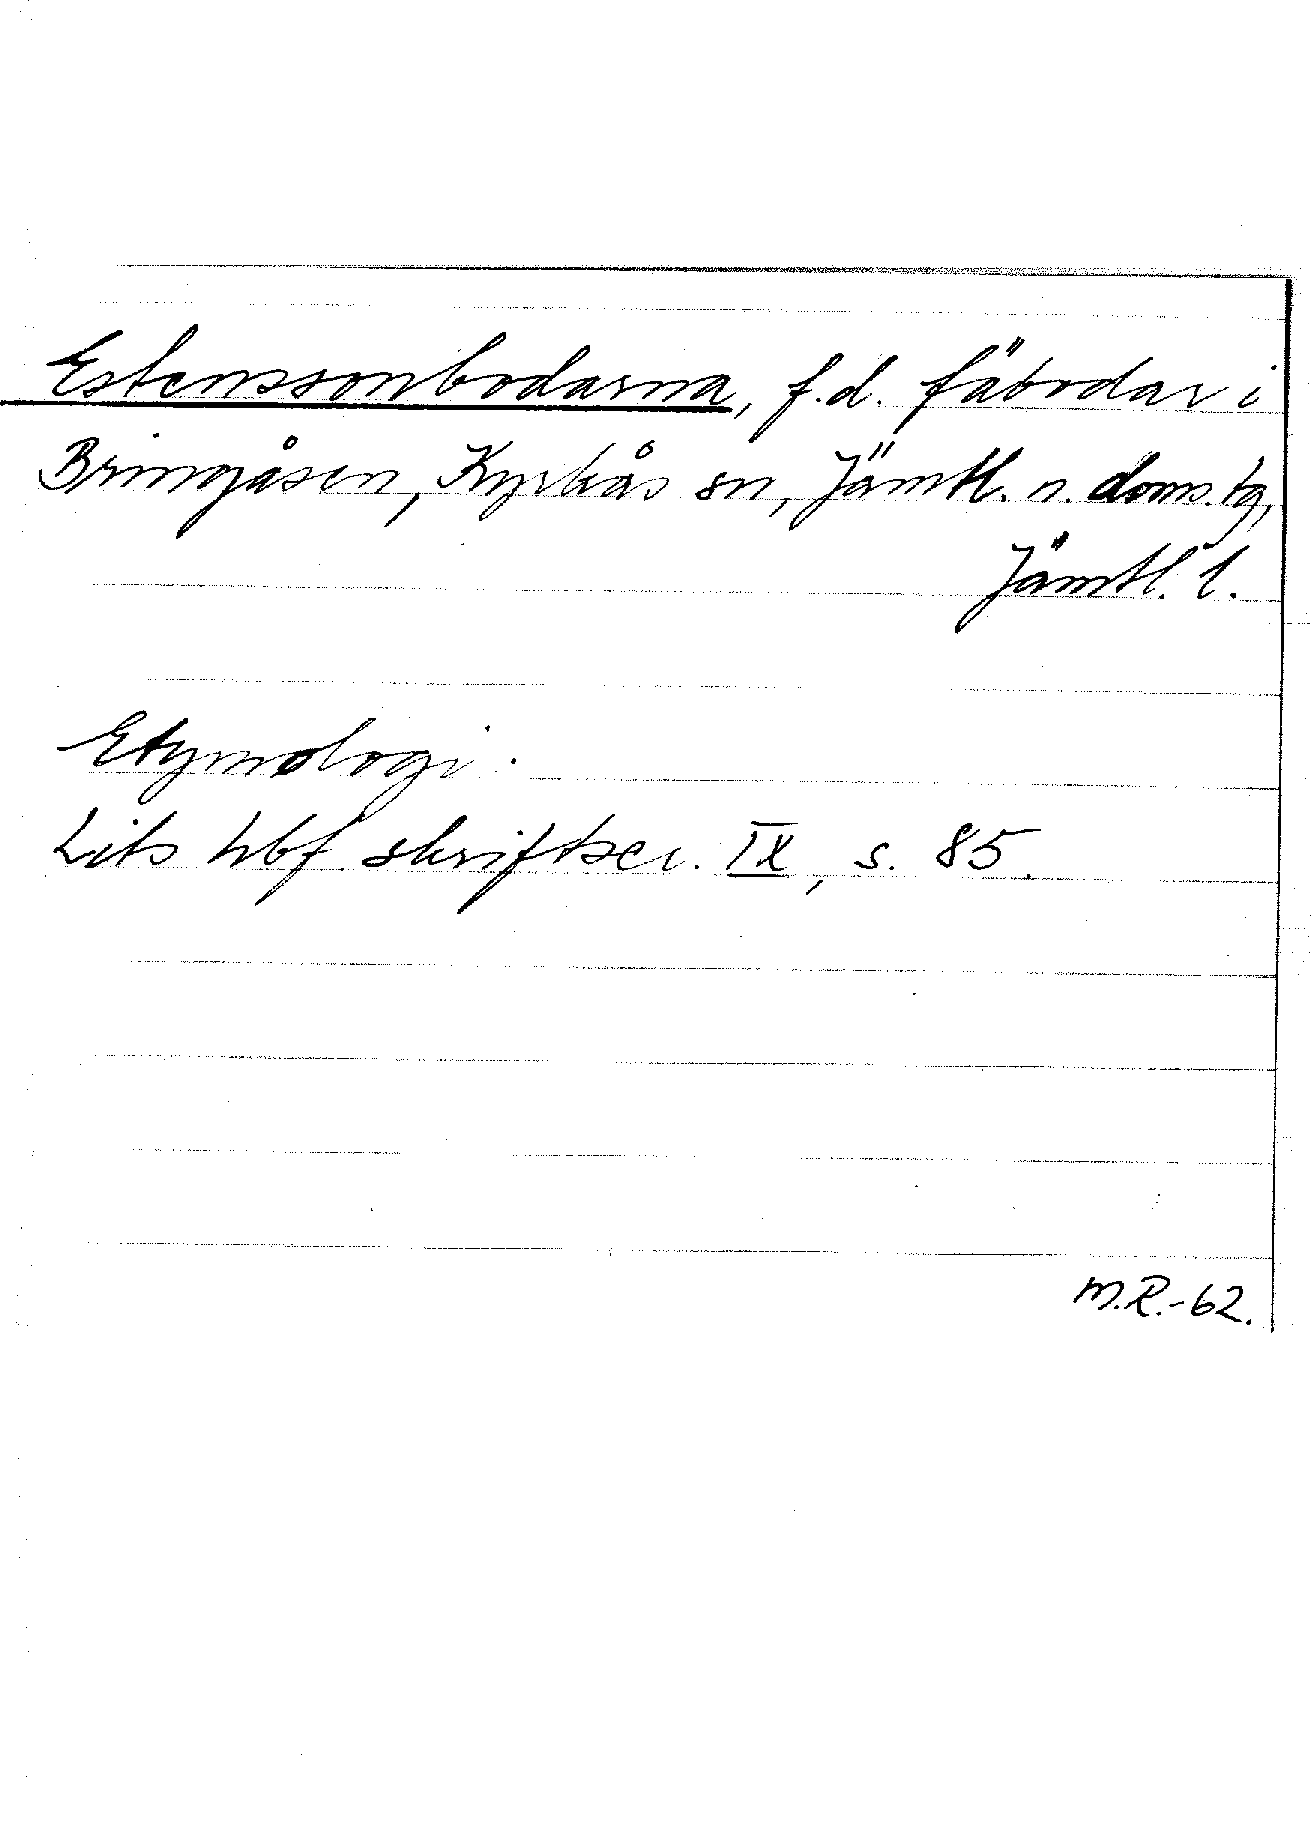 Estenssonbodarna, f.d. fäbodar i
Bringåsen, Kyrkås sn, Jämtl. n. doms.tg,
Jämtl. l.
Etymologi.
Lits hbf. skriftser. IX, s. 85.
M.R.-62.